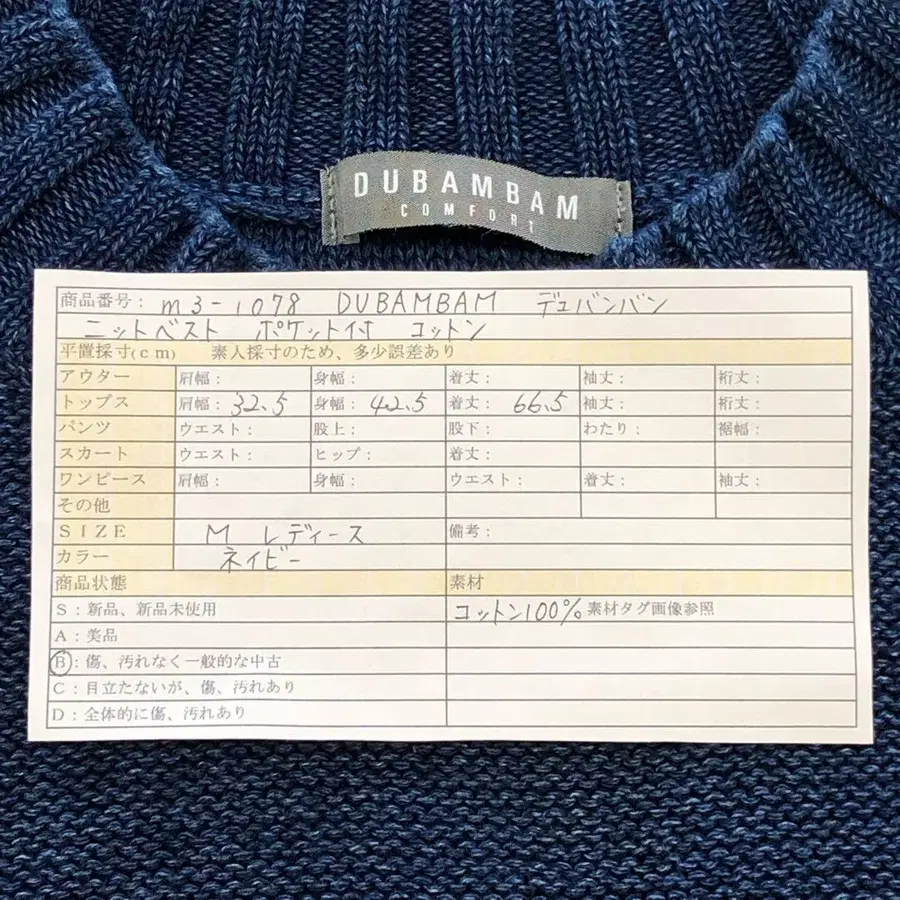 DUBAMBAM
COMFORT
商品番号： m3-1078 DUBAMBAM デュバンバン
ニットベスト ポケット付 コットン
平置採寸(ｃｍ) 素人採寸のため、多少誤差あり
アウター 肩幅： 身幅： 着丈： 袖丈： 裄丈：
トップス 肩幅：32.5 身幅：42.5 着丈：66.5 袖丈： 裄丈：
パンツ ウエスト： 股上： 股下： わたり： 裾幅：
スカート ウエスト： ヒップ： 着丈：
ワンピース 肩幅： 身幅： ウエスト： 着丈： 袖丈：
その他
ＳＩＺＥ M レディース 備考：
カラー ネイビー
商品状態 素材
Ｓ：新品、新品未使用 コットン100% 素材タグ画像参照
Ａ：美品
Ｂ：傷、汚れなく一般的な中古
Ｃ：目立たないが、傷、汚れあり
Ｄ：全体的に傷、汚れあり